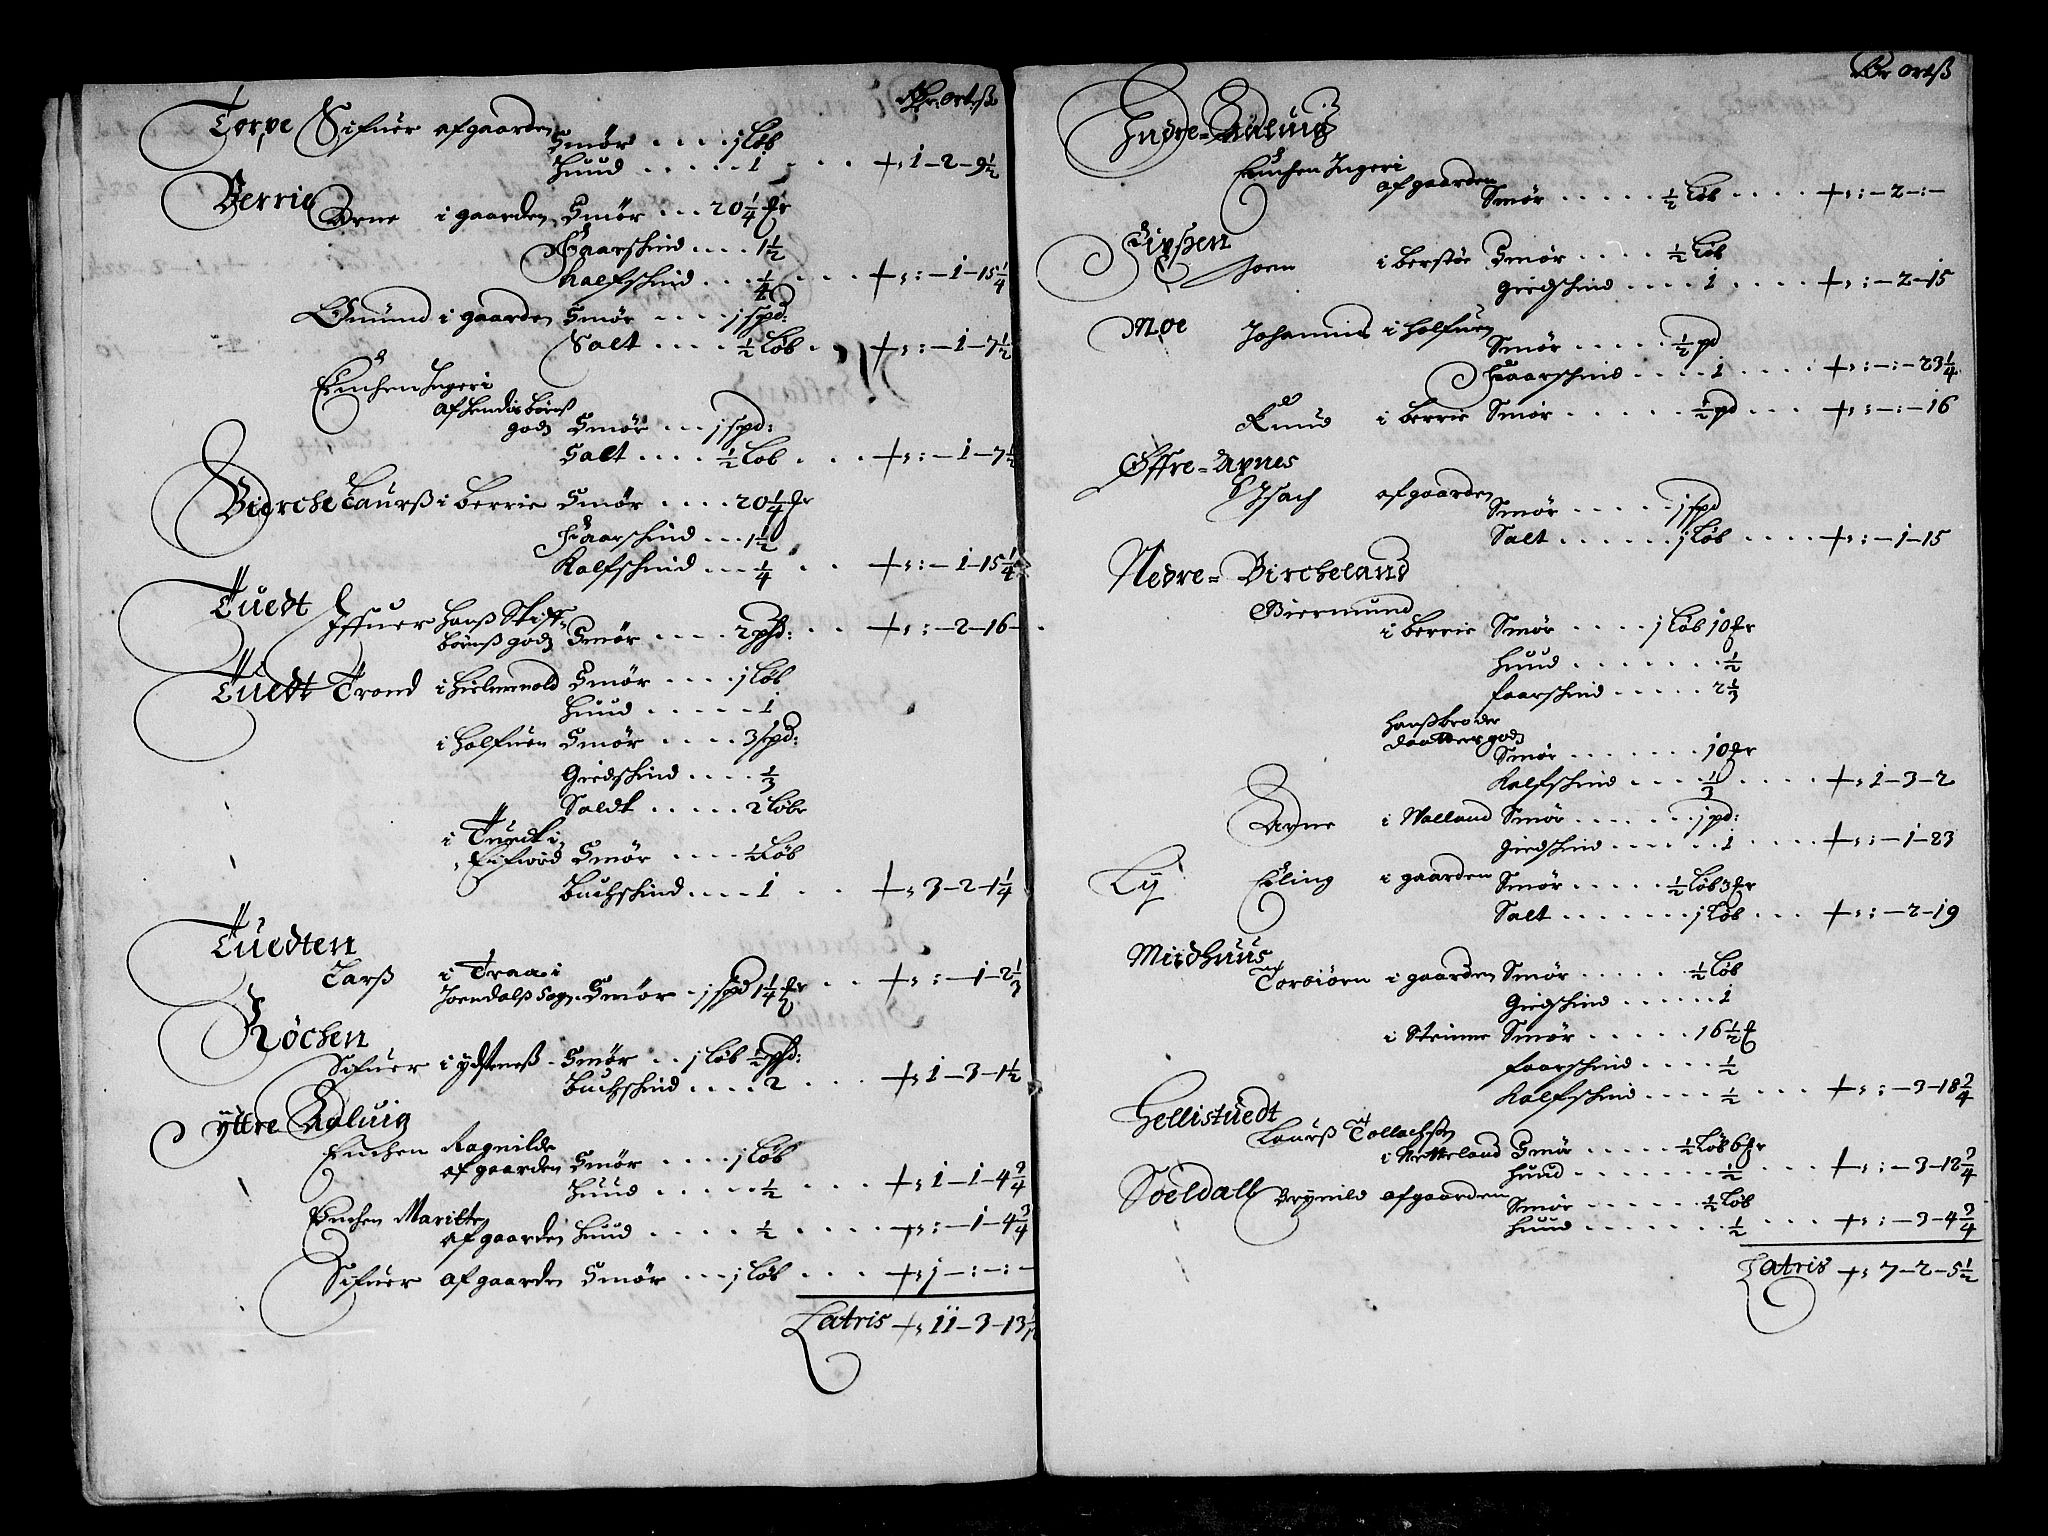 Rdr ortß
Torpe Sifuer af gaarden
Smör . . . . . j Löb
Huud . . . . . 1 . . . + 1 - 2 - 9½
Berrie Arne i gaarden Smör . . . 20¼ mr
Faarschind . . . . 1½
Kalfschind . . . ¼ . . . + : - 1 - 15¼
Omund i gaarden Smör . . . . j spd:
Salt . . . . ½ Löb . . + : - 1 - 7½
Enchen Ingeri
af hendis börnß
godz Smör . . . j spd:
Salt . . . . ½ Löb . . . + : - 1 - 7½
Birche Laurß i Berrie Smör . . . . 20¼ mr
Faarschind . . . 1½
Kalfschind . . . ¼ . . + : - 1 - 15¼
Tuedt Iffuer Hanß Stiff-
börnß godz Smör . . . . 2 pd: . . + : - 2 - 16 -
Tuedt Trond i Hielmevold Smör . . . . j Löb
Huud . . . . . 1
i Holfuen Smör . . . . 3 spd:
Giedschind . . . . ⅓
Saldt . . . . . 2 Löbe
i Tuedt i
Eifwid Smör . . . . ½ Löb
Buchschind . . . . 1 . . . + 3 - 2 - 1¼
Tuedten
Larß i Traa i
Joendalß Sogn Smör . j spd 1¼ mr . . + : - 1 - 2⅓
Röchen
Sifuer i ydsteneß . Smör . . j Löb ½ pd:
Buchschind . . . . 2 . . . + 1 - 3 - 1½
yttre Aaluig
Enchen Ragnilde
af gaarden Smör . . . . j Löb
Huud . . . . . ½ . . . + 1 - 1 - 4¾
Enchen Maritte
af gaarden Huud . . . . . ½ . . . . + : - 1 - 4¾
Sifuer af gaarden Smör . . . j Löb . . . . + j - : - : -
Latris + 11 - 3 - 13
Rdr ortß
Indre = Aaluig
Enchen Ingeri
af gaarden Smör . . . . . ½ Löb . . . . + : - 2 - : -
Joen i Berstöe Smör . . . . . ½ Löb
Giedschind . . . . 1 . . . . . + : - 2 - 15
Moe Johannis i Holfuen
Smör . . . . . ½ pd
Faarschind . . . . 1 . . . . + : - : - 23¼
Knud i Berrie Smör . . . . . . ½ pd . . . + : - : - 16
Öffre = Axnes
Isach af gaarden
Smör . . . . . j spd
Salt . . . . . . j Löb . . . . + : - 1 - 15
Nedre = Bircheland
Giermund
i Berrie Smör . . . . j Löb 10 mr
Huud . . . . . . . ½
faarschind . . . . . 2⅓
Hanß broder
daatter godz
Smör . . . . . . . 10 mr
Kalfschind . . . . ⅓ . . . . + 1 - 3 - 2
Arne i Walland Smör . . . . . . . j pd:
Giedschind . . . . . . 1 . . . . + : - 1 - 23
Ly Erling i gaarden Smör . . . . . ½ Löb 3 mr
Salt . . . . . . . j Löb . . . + : - 2 - 19
Midhuus
Torbiörn i gaarden Smör . . . . . ½ Löb
Giedschind . . . . . . 1
i Steinne Smör . . . . . 16½ mr
faarschind . . . . . ½
Kalfschind . . . . ½ . . . . + : - 3 - 18¾
Hellistuedt
Laurß Tollachßen
i Netteland Smör . . . . . ½ Löb 6 mr
Huud . . . . . . . ½ . . . . + : - 3 - 12¾
Soeldall Brynild af gaarden
Smör . . . . . . ½ Löb
Huud . . . . . . ½ . . . . + : - 3 - 4¾
Latris + 7 - 2 - 5½